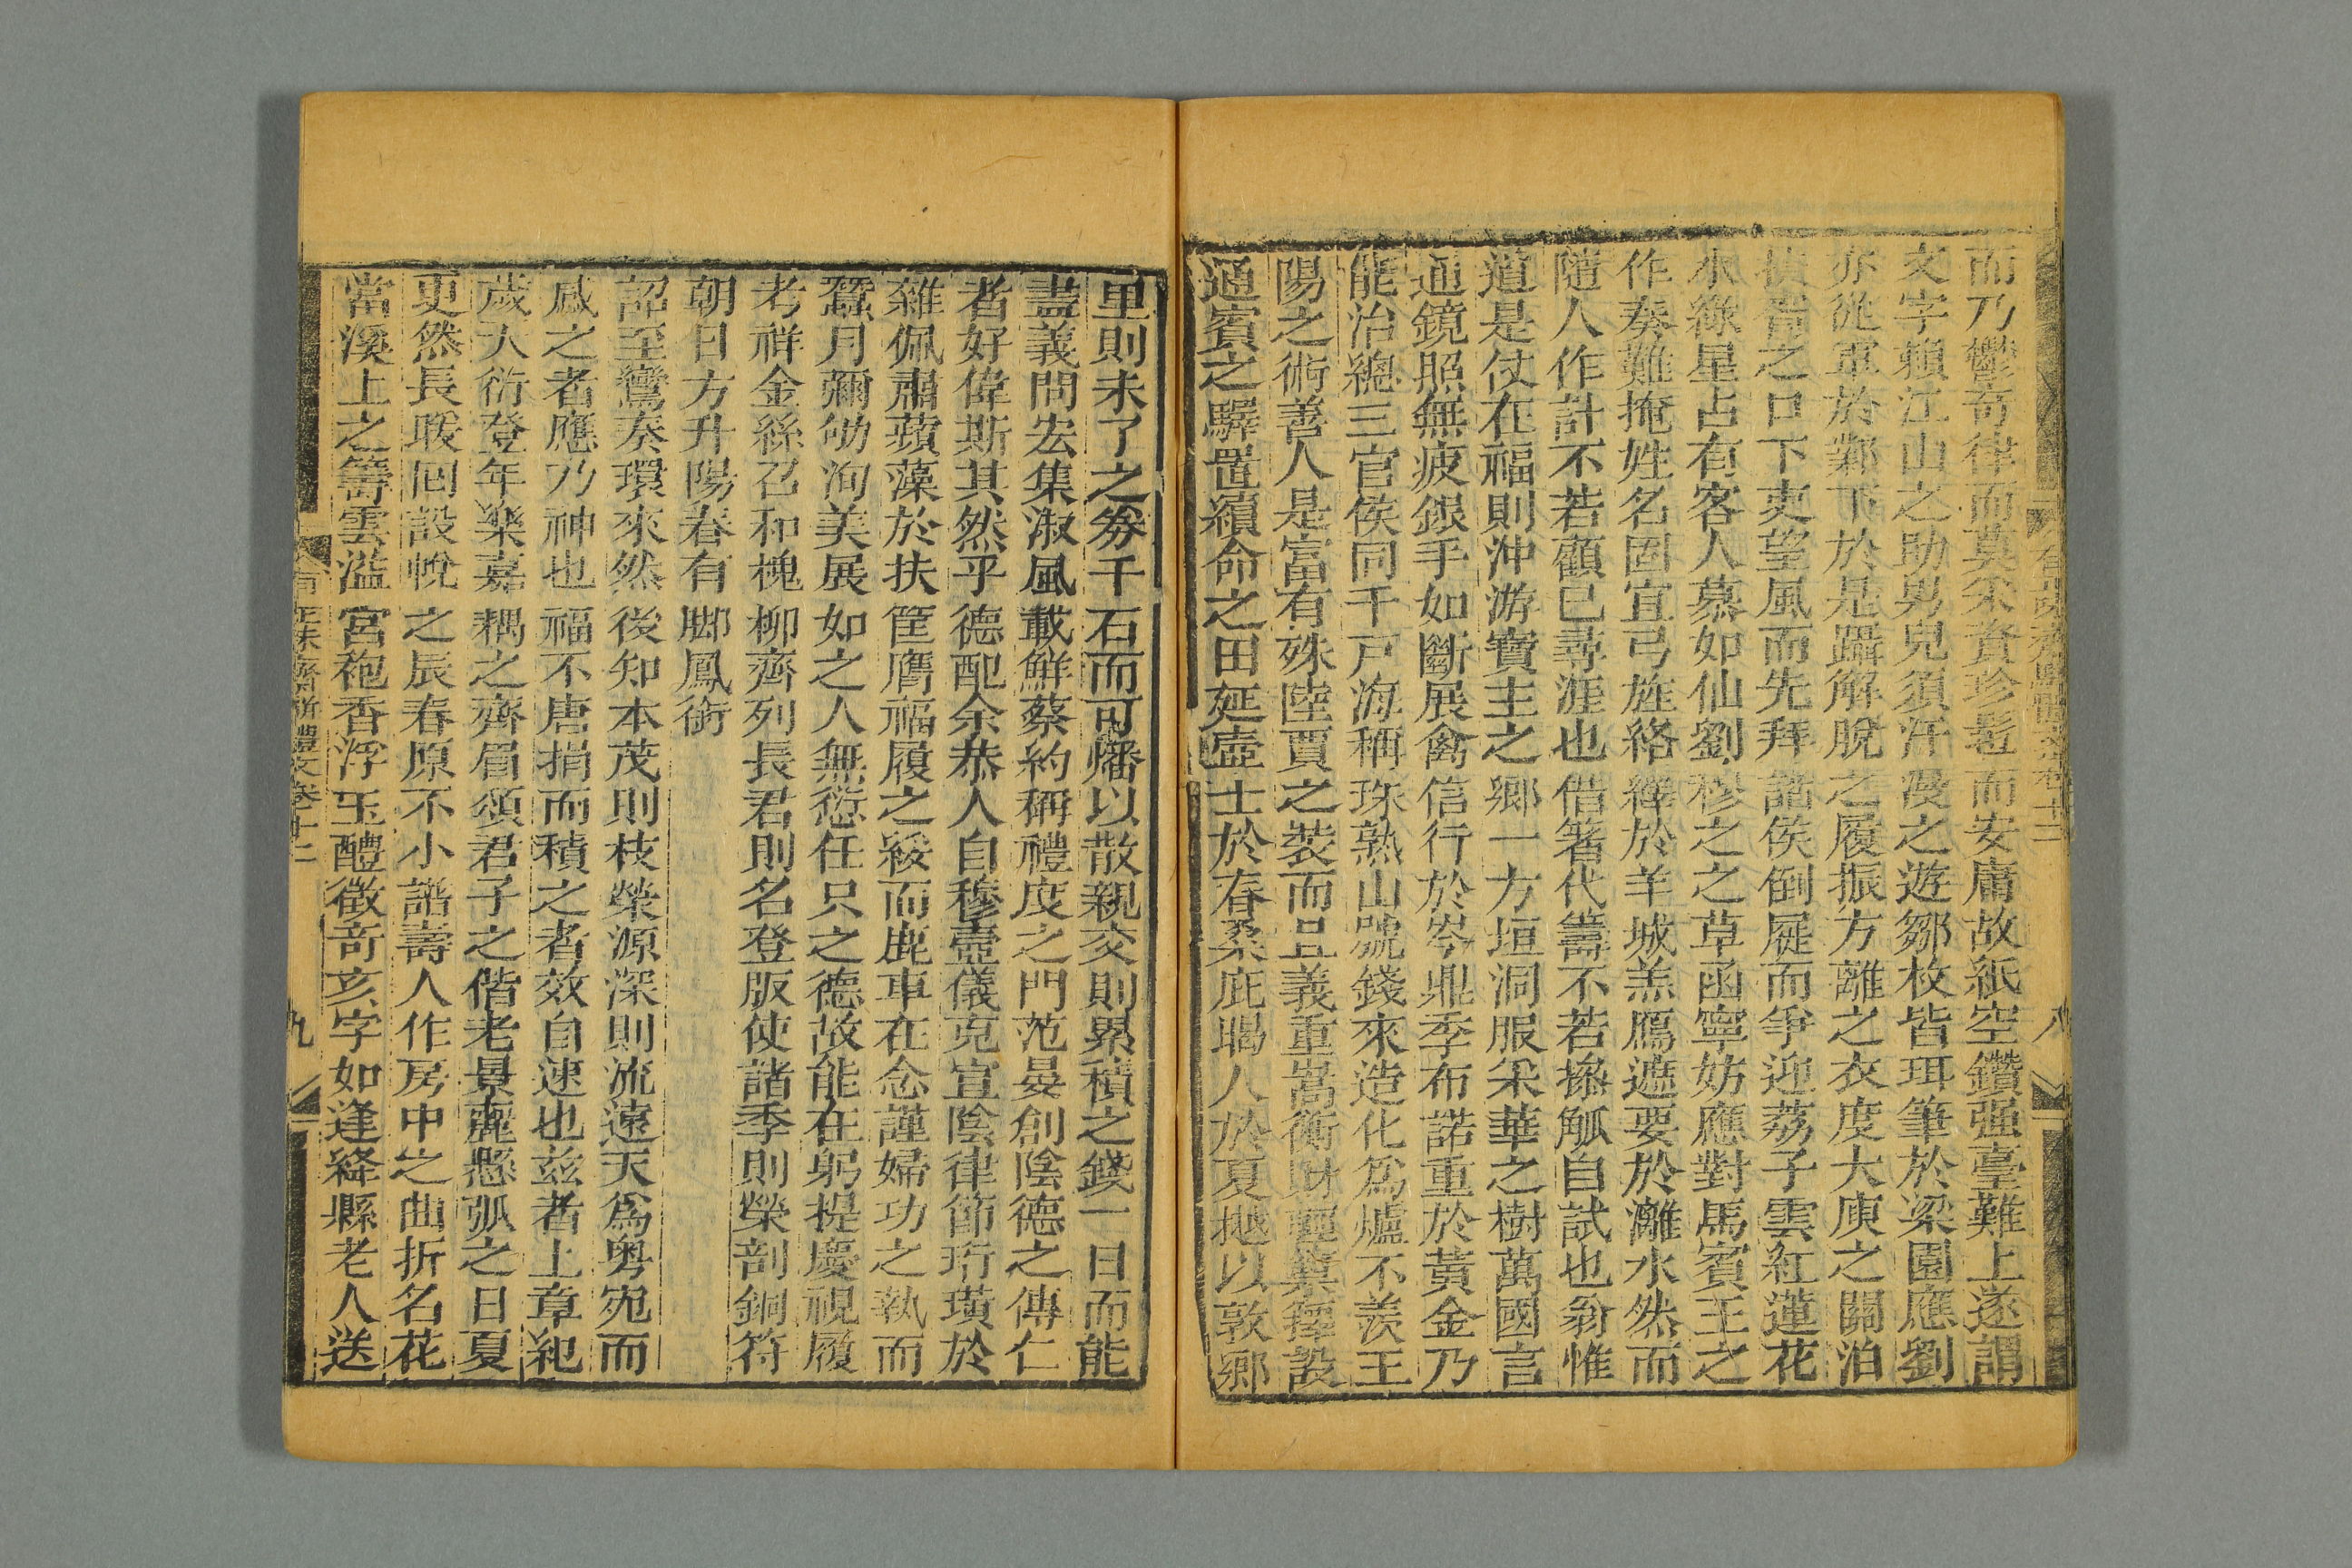 有正味齋駢體文卷十二 八
而乃鬱奇律而莫采資珍髢而安庸故紙空鑽强臺難上遂謂
文字賴江山之助男兒須汗漫之遊鄒枚皆珥筆於梁園應劉
亦從軍於鄴下於是躡解脫之履振方離之衣度大庾之關泊
湞 之口下吏望風而先拜諸侯倒屣而爭迎荔子雲紅蓮花
水綠星占有客人慕如仙劉穆之之草函寧妨應對馬賓王之
作奏難掩姓名固宜弓旌絡繹於羊城羔鴈遮要於灕水然而
隨人作計不若顧已尋涯也借箸代籌不若操觚自試也翁惟
道是仗在福則沖游寶主之鄉一方垣洞服采華之樹萬國言
通鏡照無疲銀手如斷展禽信行於岑鼎季布諾重於黃金乃
能治總三官侯同千戸海稱珠熟山號錢來造化爲爐不羨王
陽之術善人是富有殊陸賈之裝而且義重嵩衡財輕糞擇設
通賓之驛置續命之田延壺士於春桑庇暍人於夏樾以敦鄉
里則未了之券千石而可燔以散親交則累積之錢一日而能
盡義問宏集淑風載鮮蔡約稱禮度之門范晏創陰德之傳仁
者好偉斯其然乎德配余恭人自穆壼儀克宣陰律節珩璜於
雜佩肅蘋藻於扶筐膺福履之綏而鹿車在念謹婦功之執而
蠶月彌劬洵美展如之人無愆任只之德故能在躬提慶視履
考祥金絲召和槐柳齊列長君則名登版使諸季則榮剖銅符
朝日方升陽春有腳鳳銜
詔至鸞奏環來然後知本茂則枝榮源深則流遠天爲粤宛而
感之者應乃神也福不唐捐而積之者效自速也茲者上章紀
歲大衍登年樂嘉耦之齊眉頌君子之偕老景麗懸弧之日夏
更然長暖回設帨之辰春原不小諧壽人作房中之曲折名花
當溪上之籌雲溢宮袍香浮玉醴徵奇亥字如逢絳縣老人送
有正味齋駢體文卷十二 九